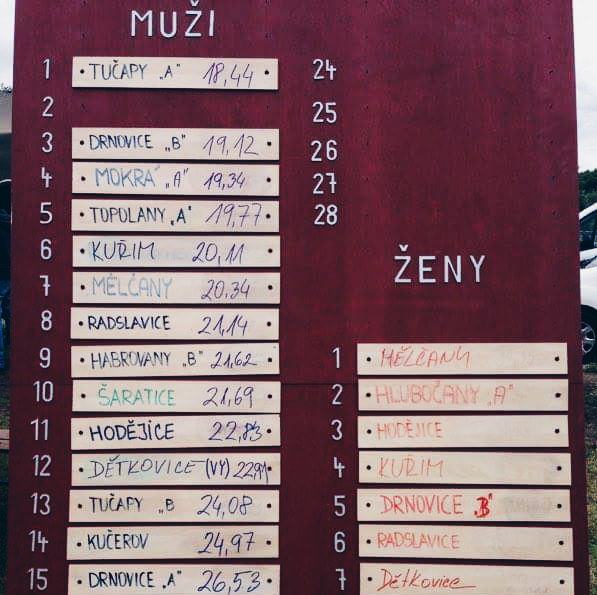 MUŽI
1 TUČAPY „A" 18,44
2
3 DRNOVICE „B" 19,12
4 MOKRÁ „A" 19,34
5 TOPOLANY „A" 19,77
6 KUŘIM 20,11
7 MĚLČANY 20,34
8 RADSLAVICE 21,14
9 HABROVANY „B" 21,62
10 ŠARATICE 21,69
11 HODĚJICE 22,83
12 DĚTKOVICE (VY) 22,91
13 TUČAPY „B 24,08
14 KUČEROV 24,97
15 DRNOVICE „A" 26,53
24
25
26
27
28
ŽENY
1 MĚLČANY
2 HLUBOČANY „A"
3 HODĚJICE
4 KUŘIM
5 DRNOVICE „B"
6 RADSLAVICE
7 Dětkovice